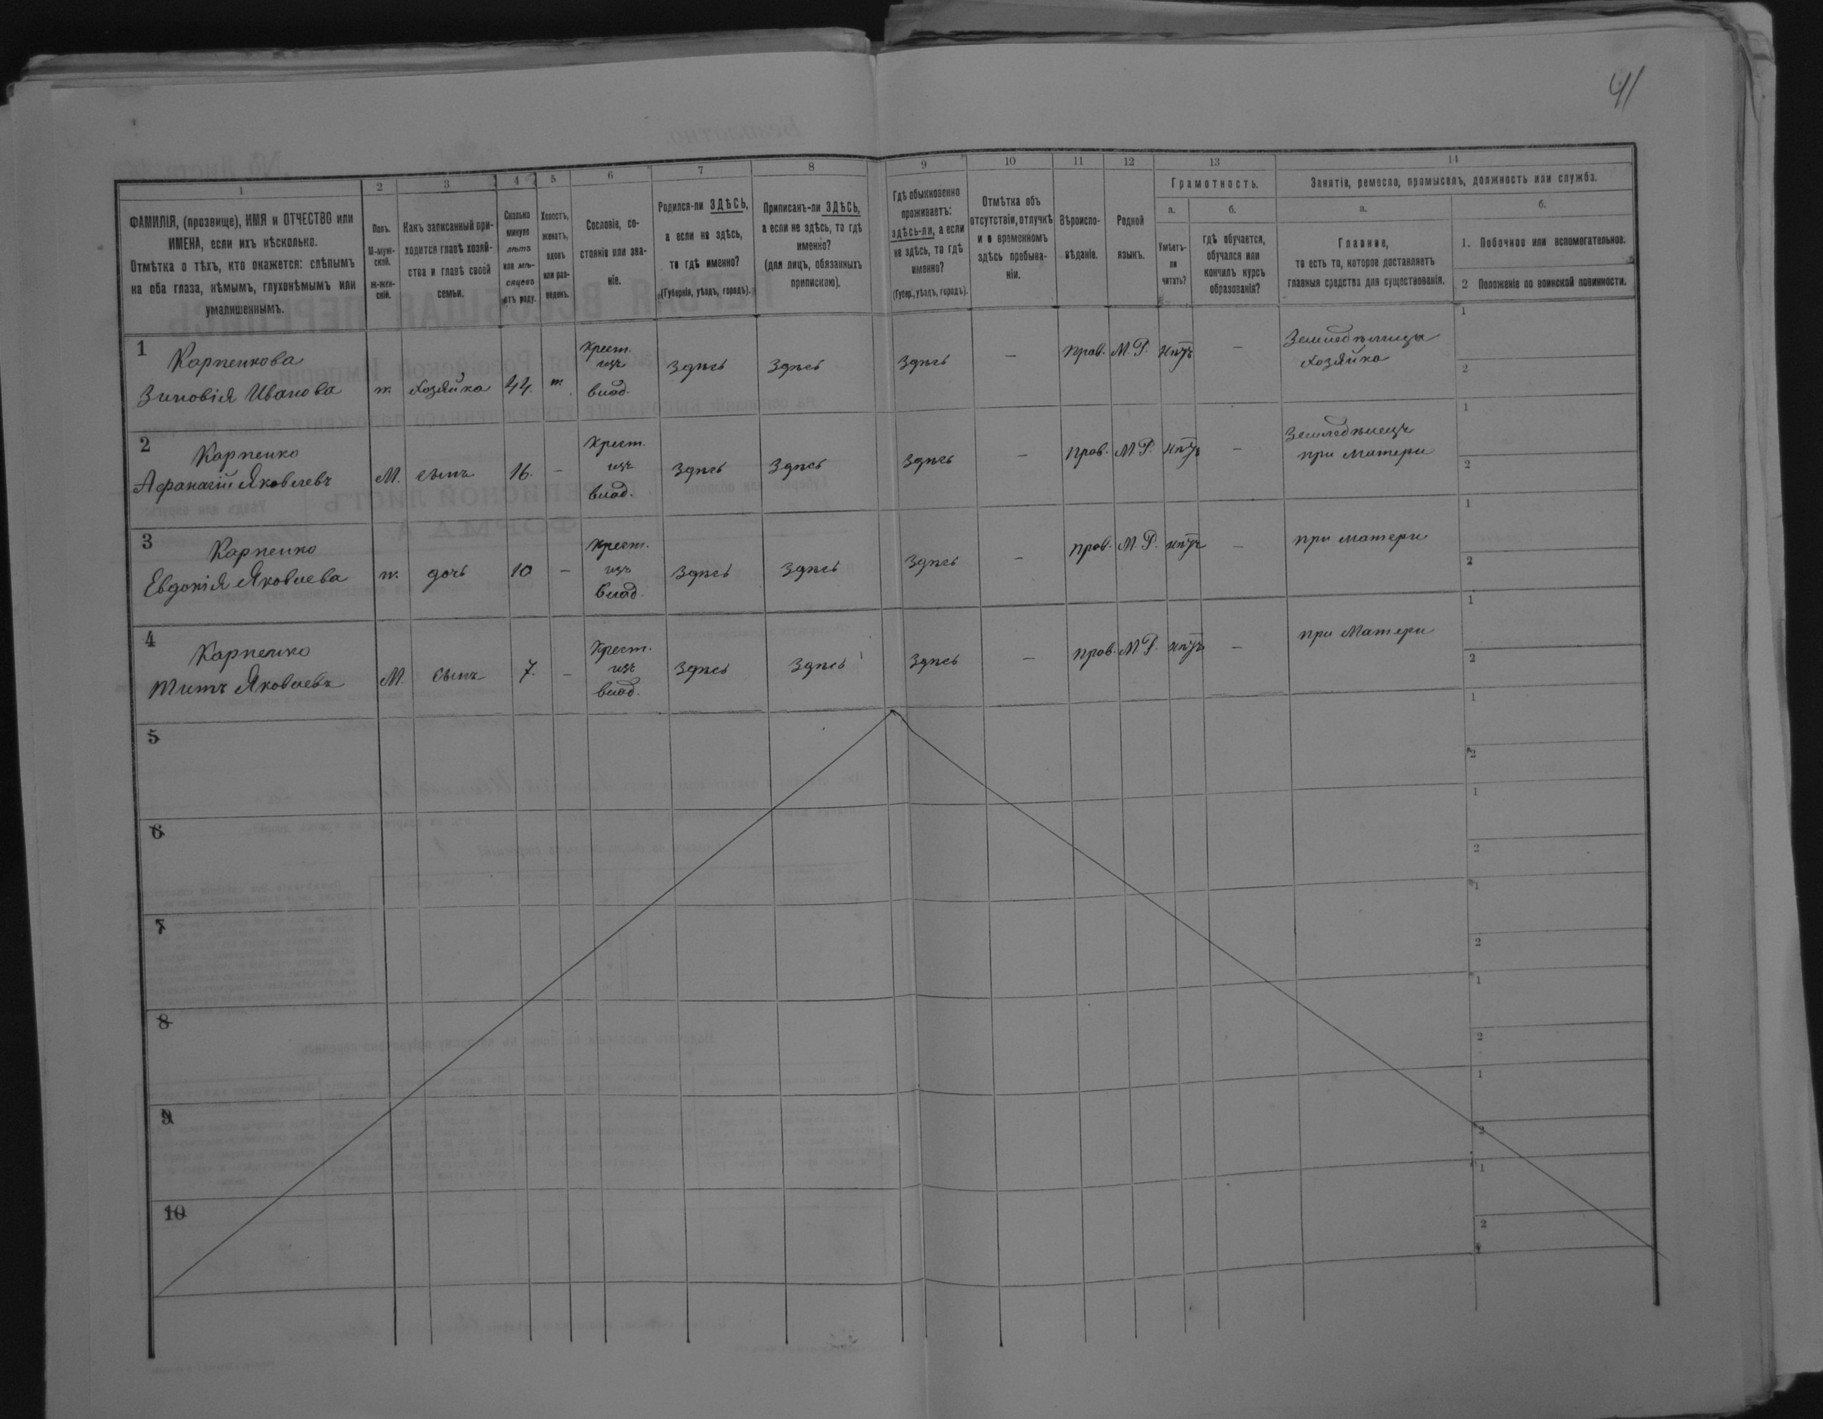 41
1
2
3
4
5
6
7
8
9
10
11
12
13
14
ФАМИЛІЯ, (прозвище), ИМЯ и ОТЧЕСТВО или
ИМЕНА, если ихъ нѣсколько.
Отмѣтка о тѣхъ, кто окажется: слѣпымъ
на оба глаза, нѣмымъ, глухонѣмымъ или
умалишеннымъ.
Полъ.
М-муж-
ской.
Ж-жен-
скій.
Какъ записанный при-
ходится главѣ хозяй-
ства и главѣ своей
семьи.
Сколько
минуло
лѣтъ
или мѣ-
сяцевъ
отъ роду.
Холостъ,
женатъ,
вдовъ
или раз-
веденъ.
Сословіе, со-
стояніе или зва-
ніе.
Родился-ли ЗДѢСЬ,
а если не здѣсь,
то гдѣ именно?
(Губернія, уѣздъ, городъ).
Приписанъ-ли ЗДѢСЬ,
а если не здѣсь, то гдѣ
именно?
(для лицъ, обязанныхъ
припискою).
Гдѣ обыкновенно
проживаетъ:
здѣсь-ли, а если
не здѣсь, то гдѣ
именно?
(Губер., уѣздъ, городъ).
Отмѣтка объ
отсутствіи, отлучкѣ
и о временномъ
здѣсь пребыва-
ніи.
Вѣроиспо-
вѣданіе.
Родной
языкъ.
Грамотность.
а.
б.
Умѣетъ-
ли
читать?
Гдѣ обучается,
обучался или
кончилъ курсъ
образованія?
Занятіе, ремесло, промыселъ, должность или служба.
а.
б.
Главное,
то есть то, которое доставляетъ
главныя средства для существованія.
1. Побочное или вспомогательное.
2 Положеніе по воинской повинности.
1
Карпенкова
Зиновія Иванова
ж. хозяйка 44.
Крест.
изъ
влад.
Здѣсь Здѣсь Здѣсь — Прав. М. Р. нѣтъ —
Земледѣлица
хозяйка
1
2
2
Карпенко
Афанасій Яковлевъ
М. сынъ 16. —
Крест.
изъ
влад.
Здѣсь Здѣсь Здѣсь — Прав. М. Р. нѣтъ —
Земледѣлецъ
при матери
1
2
3
Карпенко
Евдокія Яковлева
ж. дочь 10 —
Крест.
изъ
влад.
Здѣсь Здѣсь Здѣсь — Прав. М. Р. нѣтъ —
при матери
1
2
4
Карпенко
Титъ Яковлевъ
М. сынъ 7. —
Крест.
изъ
влад.
Здѣсь Здѣсь Здѣсь — Прав. М. Р. нѣтъ —
при Матери
1
2
5
1
2
6
1
2
7
1
2
8
1
2
9
1
2
10
1
2